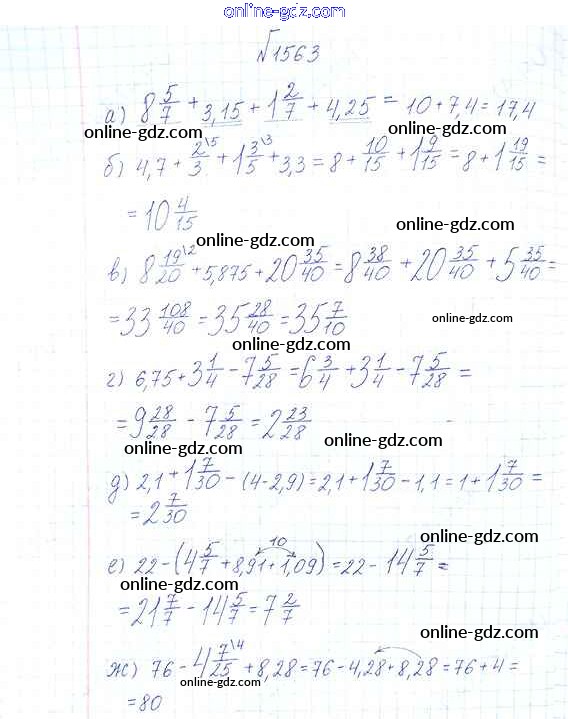 online-gdz.com
№1563
а) 8 5/7 + 3,15 + 1 2/7 + 4,25 = 10 + 7,4 = 17,4
online-gdz.com online-gdz.com
б) 4,7 + 2/3 \5 + 1 3/5 \3 + 3,3 = 8 + 10/15 + 1 9/15 = 8 + 1 19/15 =
= 10 4/15
online-gdz.com
online-gdz.com
в) 8 19/20 \2 + 5,875 + 20 35/40 = 8 38/40 + 20 35/40 + 5 35/40 =
= 33 108/40 = 35 28/40 = 35 7/10
online-gdz.com
online-gdz.com
г) 6,75 + 3 1/4 - 7 5/28 = 6 3/4 + 3 1/4 - 7 5/28 =
= 9 28/28 - 7 5/28 = 2 23/28
online-gdz.com
online-gdz.com
д) 2,1 + 1 7/30 - (4 - 2,9) = 2,1 + 1 7/30 - 1,1 = 1 + 1 7/30 =
= 2 7/30
online-gdz.com
10
е) 22 - (4 5/7 + 8,91 + 1,09) = 22 - 14 5/7 =
online-gdz.com
online-gdz.com
= 21 7/7 - 14 5/7 = 7 2/7
online-gdz.com
ж) 76 - 4 7/25 \4 + 8,28 = 76 - 4,28 + 8,28 = 76 + 4 =
online-gdz.com
online-gdz.com
= 80